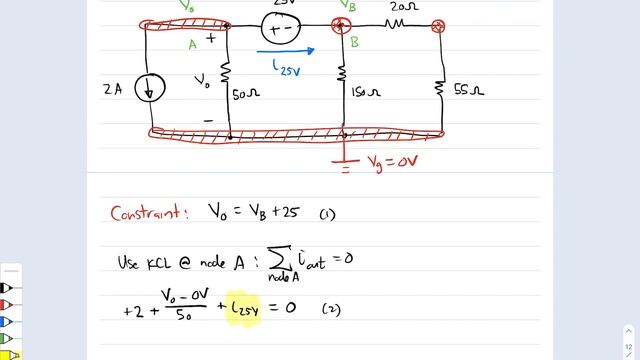 V₀ 25V V_B 20Ω
A + + - B
i_25V
2A V₀ 50Ω 150Ω 55Ω
-
V_g = 0V
Constraint: V₀ = V_B + 25 (1)
Use KCL @ node A: ∑ i_out = 0
node A
+2 + (V₀ - 0V)/50 + i_25V = 0 (2)
12